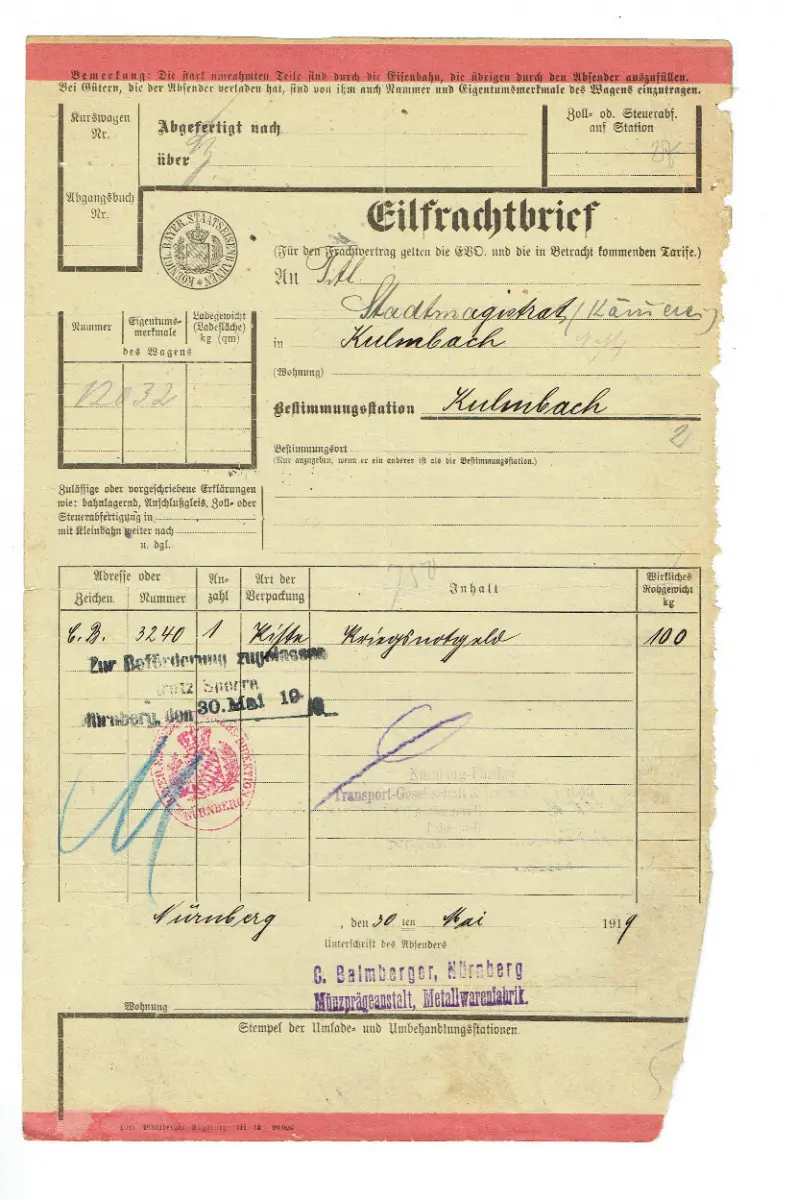 Bemerkung: Die stark umrahmten Teile sind durch die Eisenbahn, die übrigen durch den Absender auszufüllen.
Bei Gütern, die der Absender verladen hat, sind von ihm auch Nummer und Eigentumsmerkmale des Wagens einzutragen.
Kurswagen
Nr.
Abgefertigt nach
über
Zoll- od. Steuerabf.
auf Station
Abgangsbuch
Nr.
KOENIGL. BAYER. STAATSEISENBAHNEN
Eilfrachtbrief
(Für den Frachtvertrag gelten die EVO. und die in Betracht kommenden Tarife.)
An Titl.
Stadtmagistrat (Kämmerei)
in Kulmbach
(Wohnung)
Bestimmungsstation Kulmbach
2
Bestimmungsort
(Nur anzugeben, wenn er ein anderer ist als die Bestimmungsstation.)
Nummer
Eigentums-
merkmale
Ladegewicht
(Ladefläche)
kg (qm)
des Wagens
12032
Zulässige oder vorgeschriebene Erklärungen
wie: bahnlagernd, Anschlußgleis, Zoll- oder
Steuerabfertigung in
mit Kleinbahn weiter nach
u. dgl.
750
Adresse oder
Zeichen Nummer
An-
zahl
Art der
Verpackung
Inhalt
Wirkliches
Rohgewicht
kg
C. B. 3240 1 Kiste Kriegsnotgeld 100
Zur Beförderung zugelassen
trotz Sperre
Nürnberg, den 30. Mai 19
NÜRNBERG
Nürnberg-Fürther
Transport-Gesellschaft
Nürnberg, den 30 ten Mai 1919
Unterschrift des Absenders
C. Balmberger, Nürnberg
Münzprägeanstalt, Metallwarenfabrik.
Wohnung
Stempel der Umlade- und Umbehandlungsstationen.